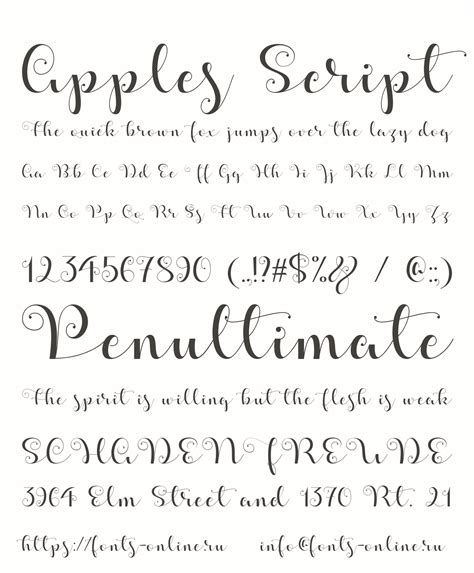 Apples Script
The quick brown fox jumps over the lazy dog
Aa Bb Cc Dd Ee Ff Gg Hh Ii Jj Kk Ll Mm
Nn Oo Pp Qq Rr Ss Tt Uu Vv Ww Xx Yy Zz
1234567890 (.,!?#$%& / @:;)
Penultimate
The spirit is willing but the flesh is weak
SCHADENFREUDE
3964 Elm Street and 1370 Rt. 21
https://fonts-online.ru info@fonts-online.ru